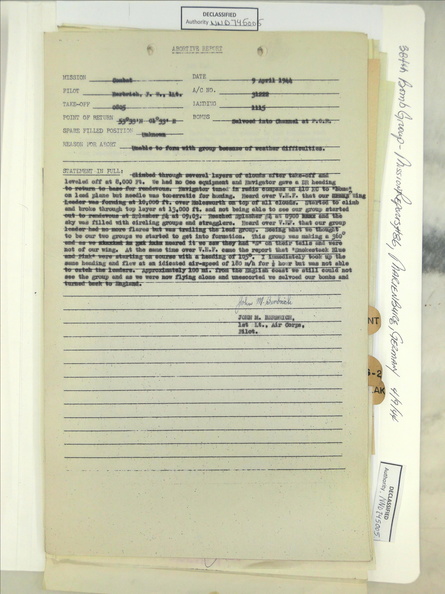 DECLASSIFIED
Authority NND745005
ABORTIVE REPORT
MISSION Combat DATE 9 April 1944
PILOT A/C NO.
TAKE-OFF 0805 LANDING 1115
POINT OF RETURN BOMBS Salvoed into Channel at
SPARE FILLED POSITION Unknown
REASON FOR ABORT Unable to form with group because of weather difficulties.
STATEMENT IN FULL: Climbed through several layers of clouds after take-off and
leveled off at 8,000 Ft. We had no Gee equipment and Navigator gave a heading
to return to base for rendezvous. Navigator tuned in radio compass on
on lead plane but needle was for homing. Heard over V.H.F. that our wing
Leader was forming at Ft. over Molesworth on top of all clouds. Started to climb
and broke through top layer at 13,000 Ft. and not being able to see our group started
out to rendezvous at at 0925. Reached Splasher at and the
sky was filled with circling groups and stragglers. Heard over V.H.F. that our group
leader had no more flares but was trailing the lead group. Seeing what we thought
to be our two groups we started to get into formation. This group was making a 360°
and as we neared it we saw they had on their tails and were
not of our wing. At the same time over V.H.F. came the report that
were starting on course with a heading of I immediately took up the
same heading and flew at an indicated air-speed of 180 m/h for ½ hour but was not able
to catch the leaders. Approximately 100 mi. from the English coast we still could not
see the group and as we were now flying alone and unescorted we salvoed our bombs and
turned back to England.
JOHN M.
1st Lt., Air Corps,
Pilot.
384th Bomb Group -
GERMANY 4/9/44
DECLASSIFIED
Authority NND745005